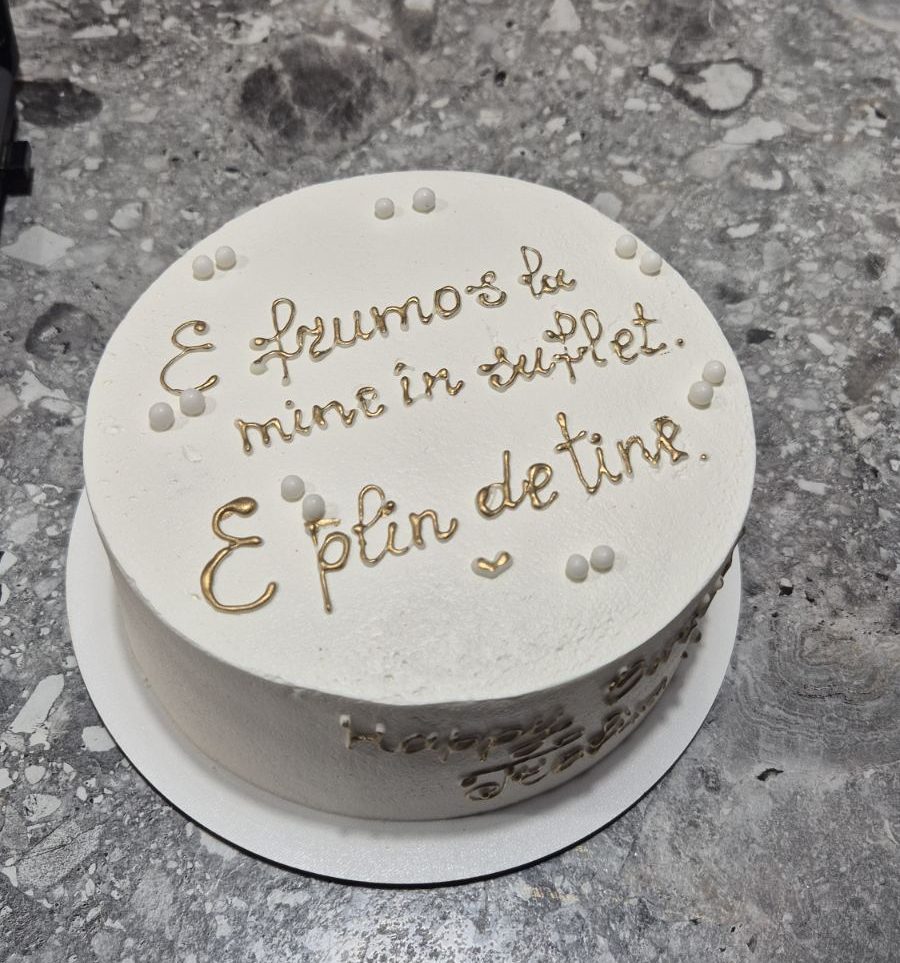 E frumos la
mine în suflet.
E plin de tine.
Happy